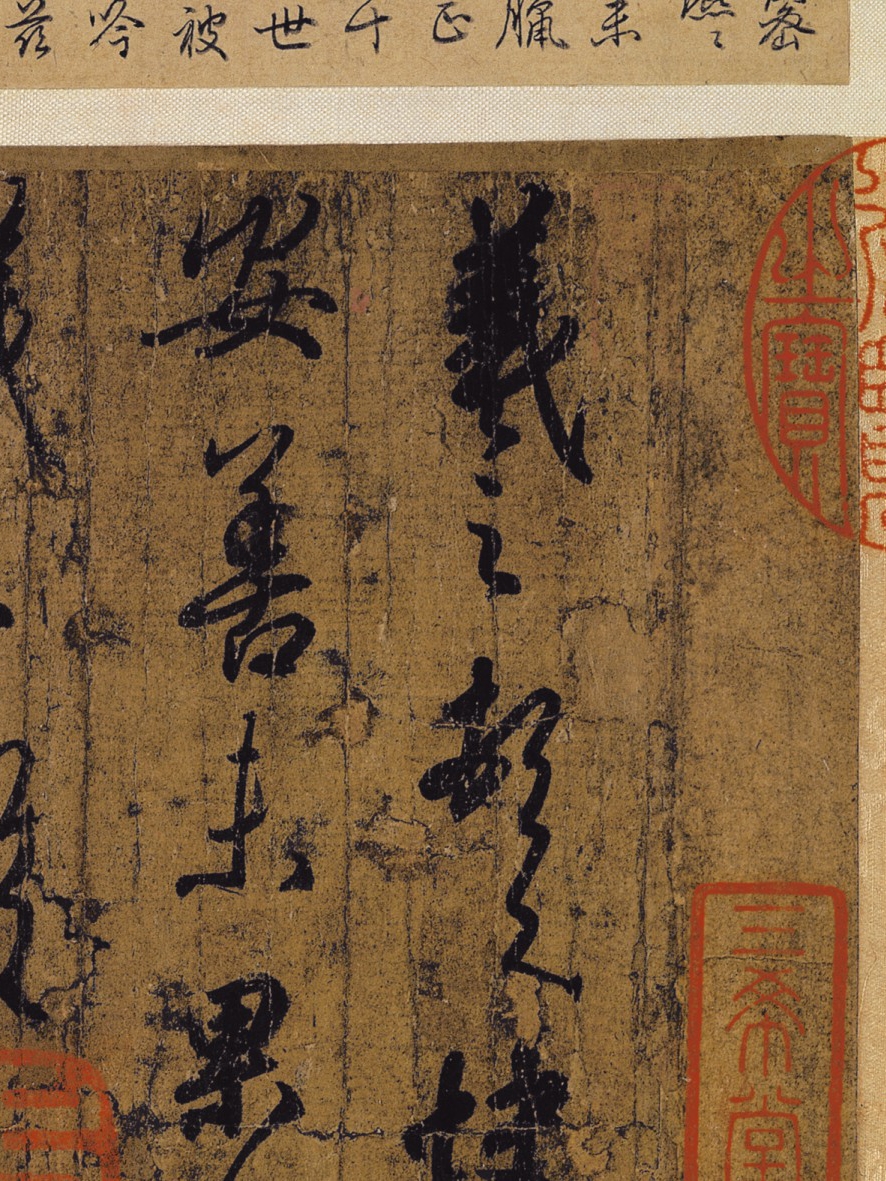 未
臘
正
十
世
被
吟
茲
之寶
三希堂
羲之頓首快
安善未果